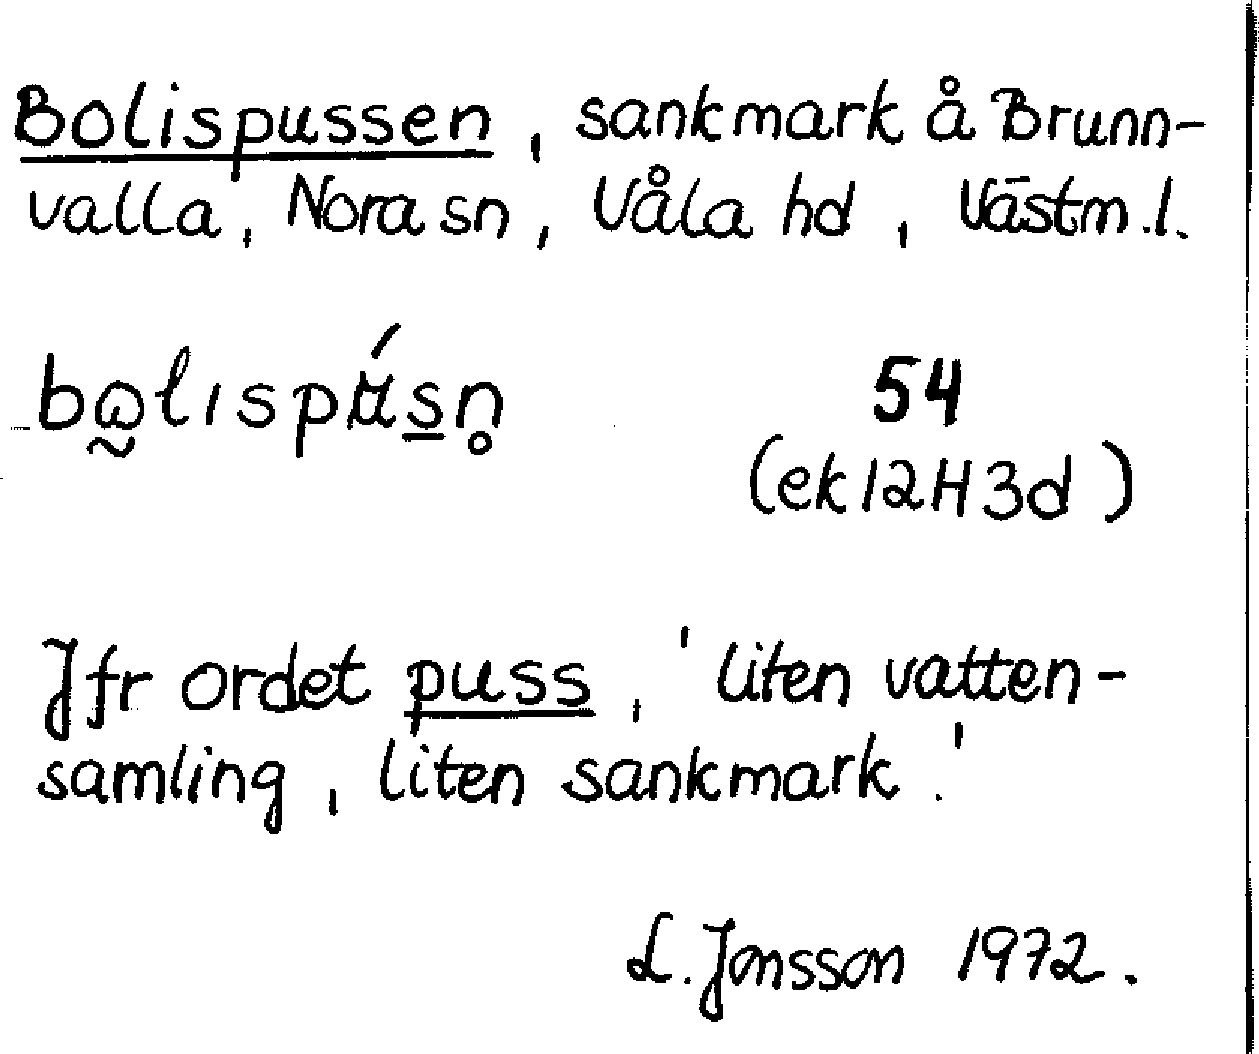 Bolispussen, sankmark å Brunn-
valla, Nora sn, Våla hd, Västm.l.
54
(ek 12H3d)
Jfr ordet puss, 'liten vatten-
samling, liten sankmark.'
L. Jonsson 1972.